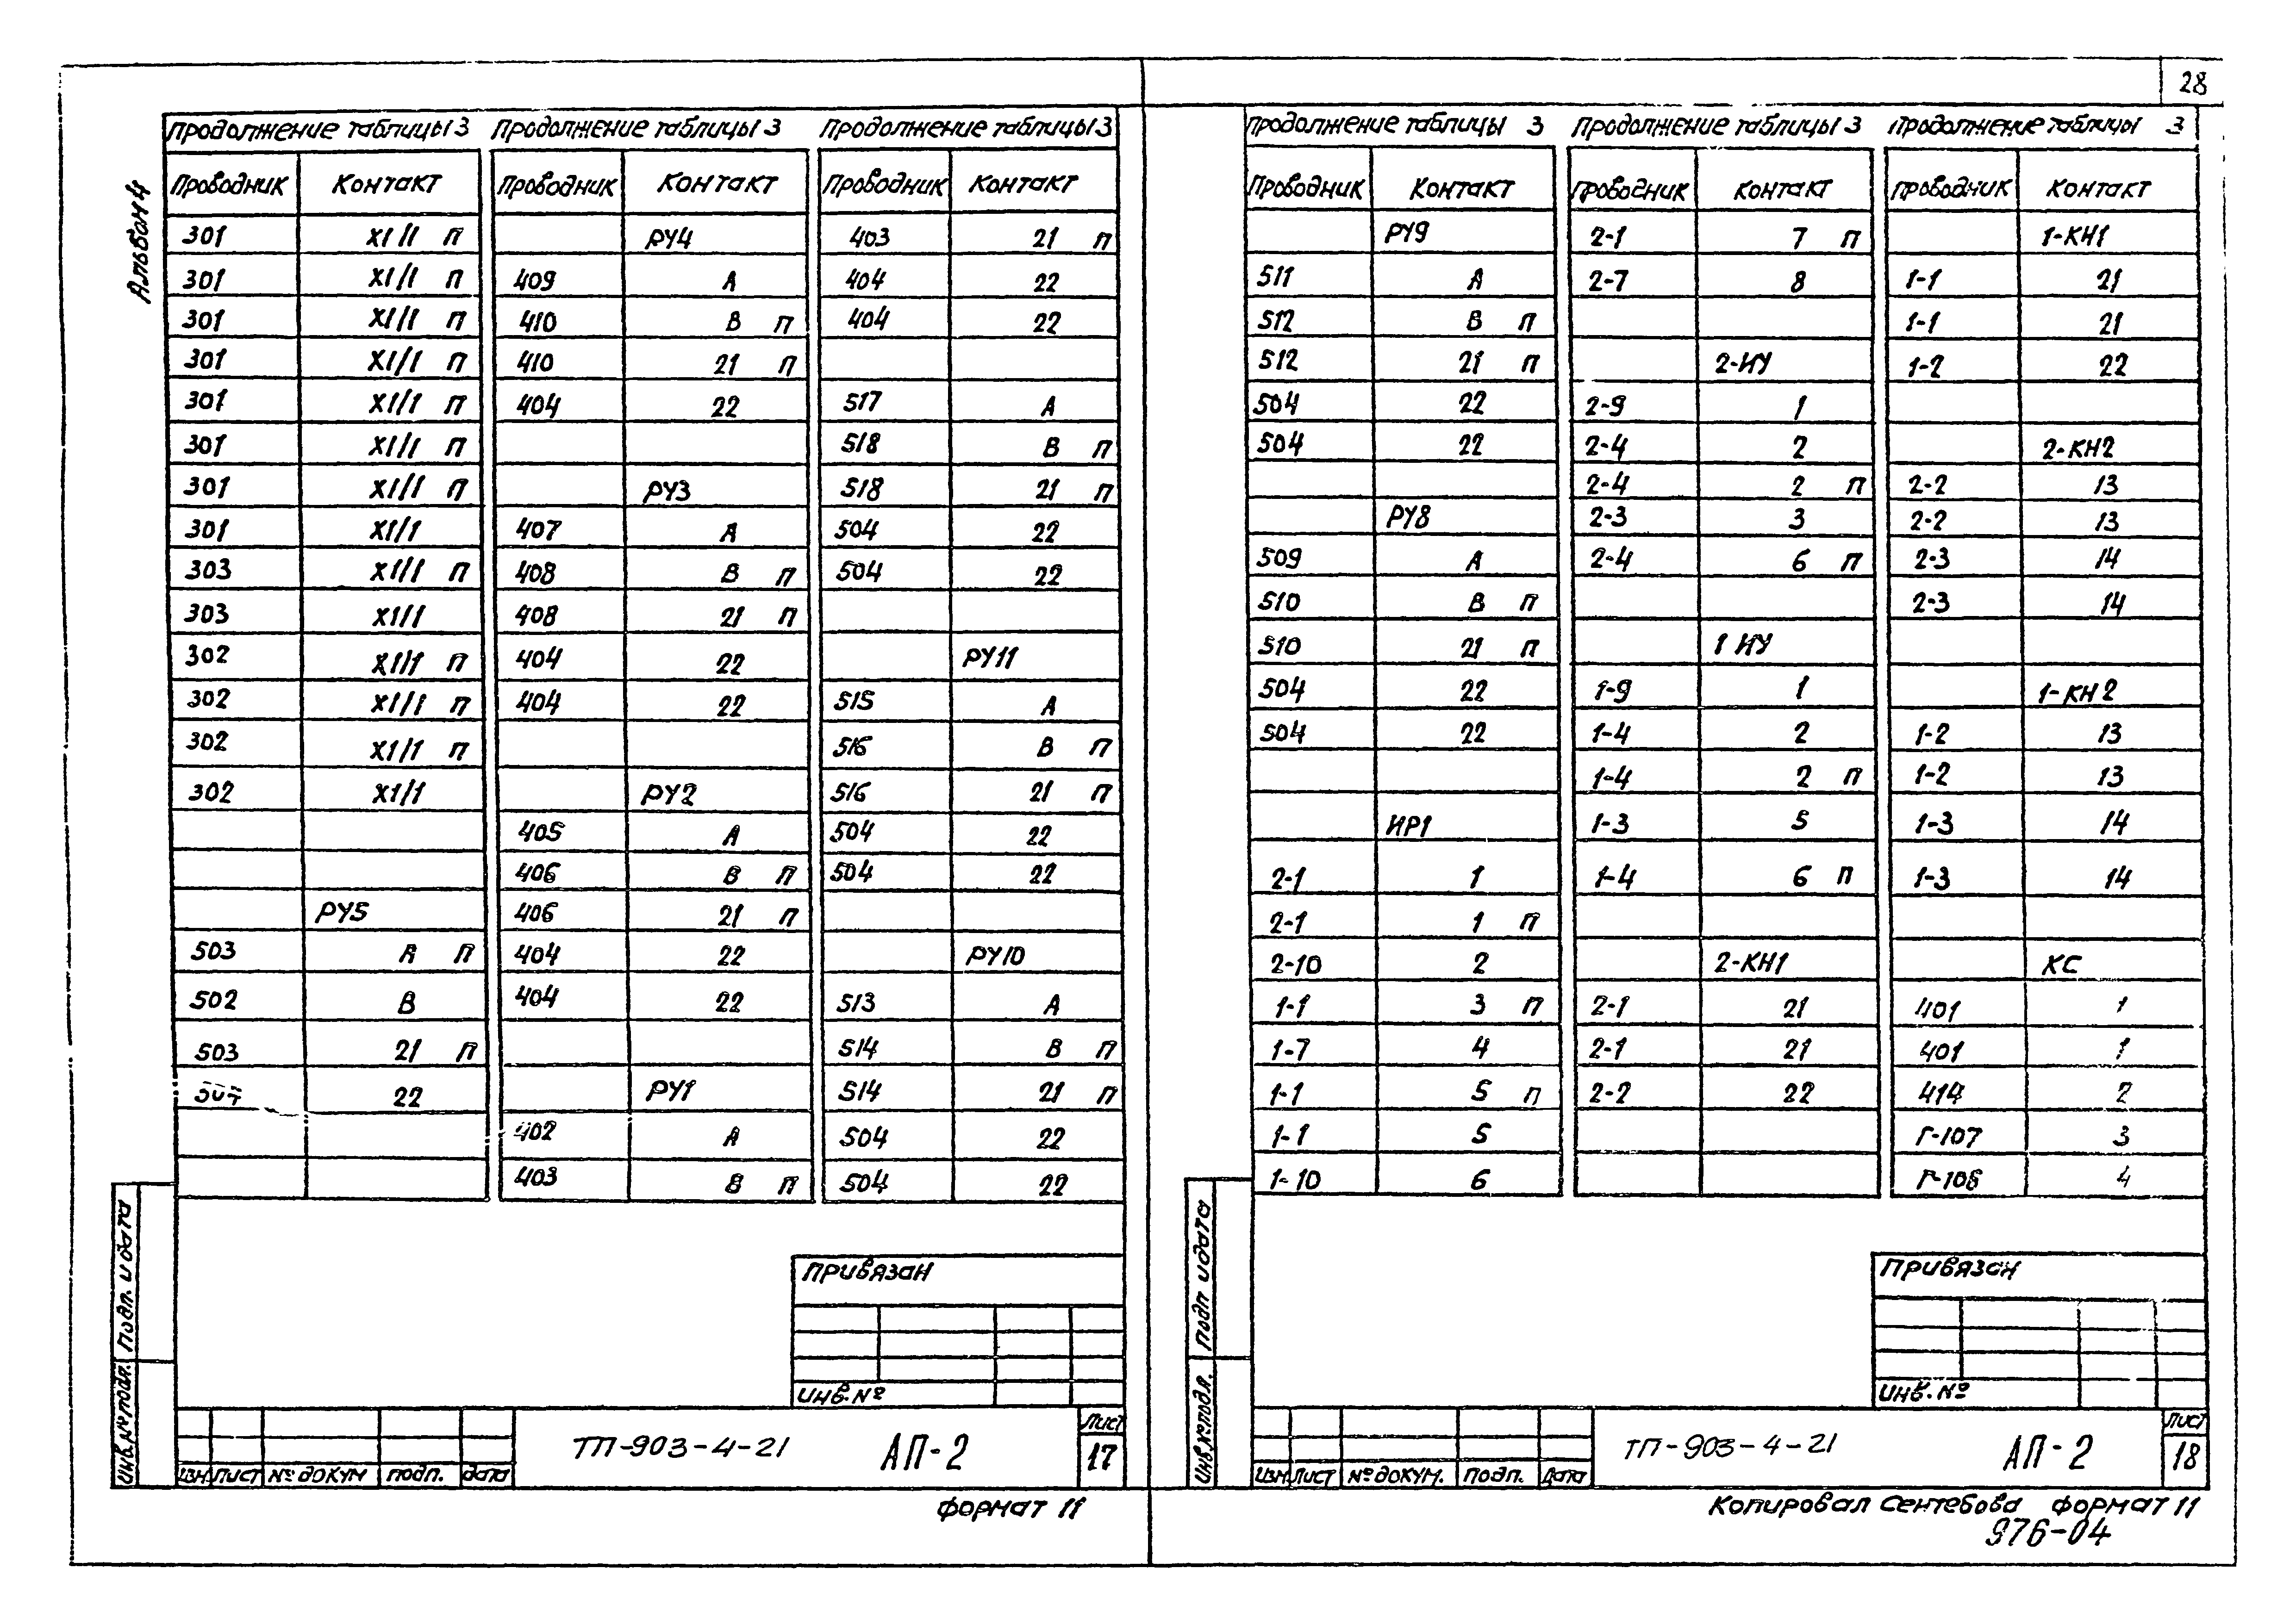 28
Альбом 4
Продолжение таблицы 3
Проводник Контакт
301 X1/1 П
301 X1/1 П
301 X1/1 П
301 X1/1 П
301 X1/1 П
301 X1/1 П
301 X1/1 П
301 X1/1
303 X1/1 П
303 X1/1
302 X1/1 П
302 X1/1 П
302 X1/1 П
302 X1/1
РУ5
503 А П
502 В
503 21 П
22
Продолжение таблицы 3
Проводник Контакт
РУ4
409 А
410 В П
410 21 П
404 22
РУ3
407 А
408 В П
408 21 П
404 22
404 22
РУ2
405 А
406 В П
406 21 П
404 22
404 22
РУ1
402 А
403 В П
Продолжение таблицы 3
Проводник Контакт
403 21 П
404 22
404 22
517 А
518 В П
518 21 П
504 22
504 22
РУ11
515 А
516 В П
516 21 П
504 22
504 22
РУ10
513 А
514 В П
514 21 П
504 22
504 22
Привязан
Инв.№
ТП-903-4-21 АП-2
Лист
17
Изм Лист № докум подп. дата
Инв.№ подл. Подп. и дата
Формат 11
Продолжение таблицы 3
Проводник Контакт
РУ9
511 А
512 В П
512 21 П
504 22
504 22
РУ8
509 А
510 В П
510 21 П
504 22
504 22
ИР1
2-1 1
2-1 1 П
2-10 2
1-1 3 П
1-7 4
1-1 5 П
1-1 5
1-10 6
Продолжение таблицы 3
Проводник Контакт
2-1 7 П
2-7 8
2-ИУ
2-9 1
2-4 2
2-4 2 П
2-3 3
2-4 6 П
1 ИУ
1-9 1
1-4 2
1-4 2 П
1-3 5
1-4 6 П
2-КН1
2-1 21
2-1 21
2-2 22
Продолжение таблицы 3
Проводник Контакт
1-КН1
1-1 21
1-1 21
1-2 22
2-КН2
2-2 13
2-2 13
2-3 14
2-3 14
1-КН2
1-2 13
1-2 13
1-3 14
1-3 14
КС
401 1
401 1
414 2
Г-107 3
Г-106 4
Привязан
Инв.№
ТП-903-4-21 АП-2
Лист
18
Изм Лист № докум. Подп. Дата
Инв.№ подл. Подп и дата
Копировал Сентебова Формат 11
976-04